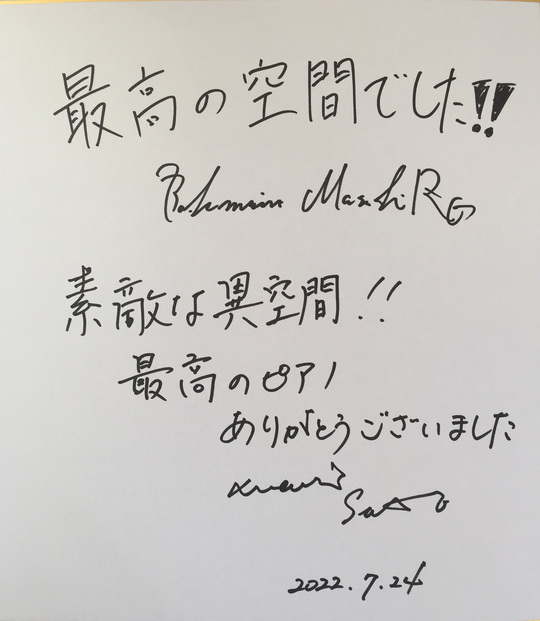 最高の空間でした!!
素敵な異空間!!
最高のピアノ
ありがとうございました
2022.7.24